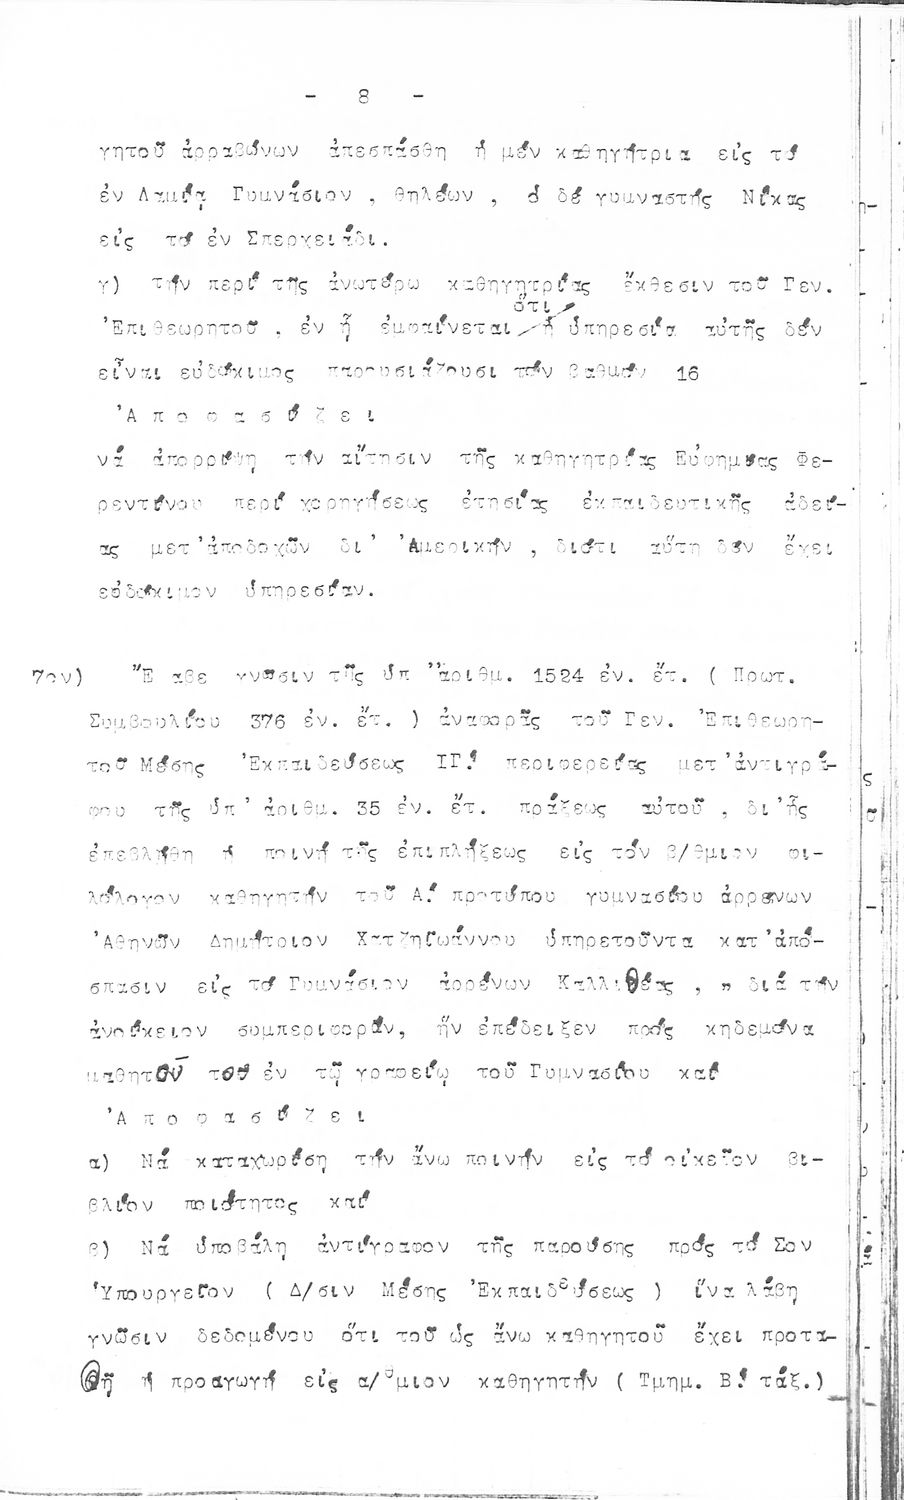 - 8 -
γητοῦ ἀρραβώνων ἀπεσπάσθη ἡ μέν καθηγήτρια εἰς τό
ἐν Λαμίᾳ Γυμνάσιον , θηλέων , ὁ δέ γυμναστής Νίκας
εἰς τό ἐν Σπερχειάδι.
γ) τήν περί τῆς ἀνωτέρω καθηγητρίας ἔκθεσιν τοῦ Γεν.
ὅτι
Ἐπιθεωρητοῦ , ἐν ᾗ ἐμφαίνεται ἡ ὑπηρεσία αὐτῆς δέν
εἶναι εὐδόκιμος παρουσιάζουσι τόν βαθμόν 16
Ἀ π ο φ α σ ί ζ ε ι
νά ἀπορρίψη τήν αἴτησιν τῆς καθηγητρίας Εὐφημίας Φε-
ρεντίνου περί χορηγήσεως ἐτησίας ἐκπαιδευτικῆς ἀδεί-
ας μετ'ἀποδοχῶν δι' Ἀμερικήν , διότι αὕτη δέν ἔχει
εὐδόκιμον ὑπηρεσίαν.
7ον) Ἔ αβε γνῶσιν τῆς ὑπ ἀριθμ. 1524 ἐν. ἔτ. ( Πρωτ.
Συμβουλίου 376 ἐν. ἔτ. ) ἀναφορᾶς τοῦ Γεν. Ἐπιθεωρη-
τοῦ Μέσης Ἐκπαιδεύσεως ΙΓ! περιφερείας μετ'ἀντιγρά-
φου τῆς ὑπ' ἀριθμ. 35 ἐν. ἔτ. πράξεως αὐτοῦ , δι'ἧς
ἐπεβλήθη ἡ ποινή τῆς ἐπιπλήξεως εἰς τόν β/θμιον φι-
λόλογον καθηγητήν τοῦ Α! προτύπου γυμνασίου ἀρρένων
Ἀθηνῶν Δημήτριον Χατζηϊωάννου ὑπηρετοῦντα κατ'ἀπό-
σπασιν εἰς τό Γυμνάσιον ἀρρένων Καλλιθέας , " διά τήν
ἀνοίκειον συμπεριφοράν, ἥν ἐπέδειξεν πρός κηδεμόνα
μαθητοῦ του ἐν τῷ γραφείῳ τοῦ Γυμνασίου καί
Ἀ π ο φ α σ ί ζ ε ι
α) Νά καταχωρίση τήν ἄνω ποινήν εἰς τό οἰκεῖον βι-
βλίον ποιότητος καί
β) Νά ὑποβάλη ἀντίγραφον τῆς παρούσης πρός τό Σον
Ὑπουργεῖον ( Δ/σιν Μέσης Ἐκπαιδεύσεως ) ἵνα λάβη
γνῶσιν δεδομένου ὅτι τοῦ ὡς ἄνω καθηγητοῦ ἔχει προτα-
θῆ ἡ προαγωγή εἰς α/θμιον καθηγητήν ( Τμημ. Β! τάξ.)